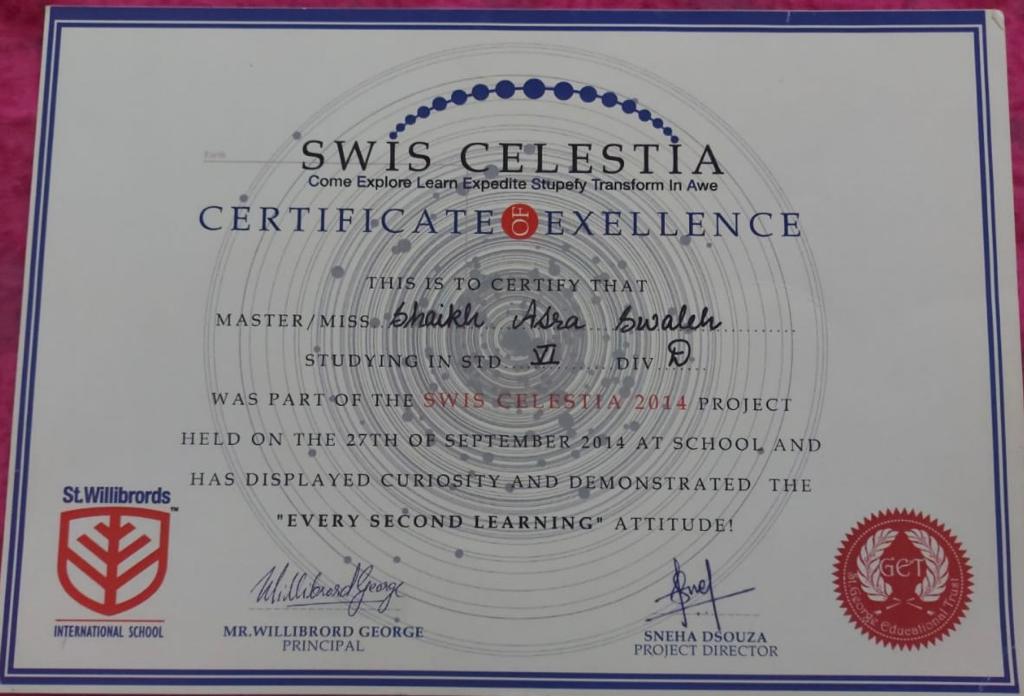 Earth
SWIS CELESTIA
Come Explore Learn Expedite Stupefy Transform In Awe
CERTIFICATE OF EXELLENCE
THIS IS TO CERTIFY THAT
MASTER/MISS Shaikh Asra Swaleh
STUDYING IN STD VI DIV D
WAS PART OF THE SWIS CELESTIA 2014 PROJECT
HELD ON THE 27TH OF SEPTEMBER 2014 AT SCHOOL AND
HAS DISPLAYED CURIOSITY AND DEMONSTRATED THE
"EVERY SECOND LEARNING" ATTITUDE!
St.Willibrords™
INTERNATIONAL SCHOOL
Willibrord George
MR.WILLIBRORD GEORGE
PRINCIPAL
SNEHA DSOUZA
PROJECT DIRECTOR
GET
St.George Educational Trust